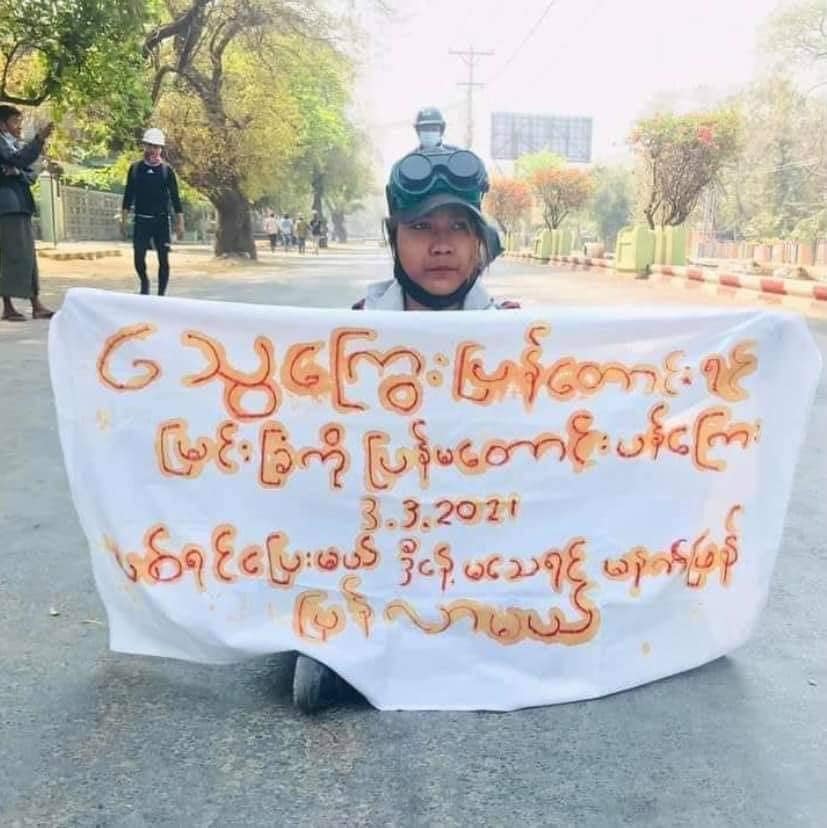 သွေးကြွေးပြန်တောင်းရင်
မြင်းခြံကို ပြန်မတောင်းပန်ကြေး
3.3.2021
ပစ်ရင်ပြေးမယ် ဒီနေ့မသေရင် မနက်ဖြန်
ပြန်လာမယ်